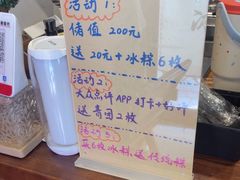 活动1:
储值 200元
送 20元+冰粽6枚
活动2:
大众点评APP打卡+好评
送 青团2枚
活动3:
6枚冰粽,送传统粽